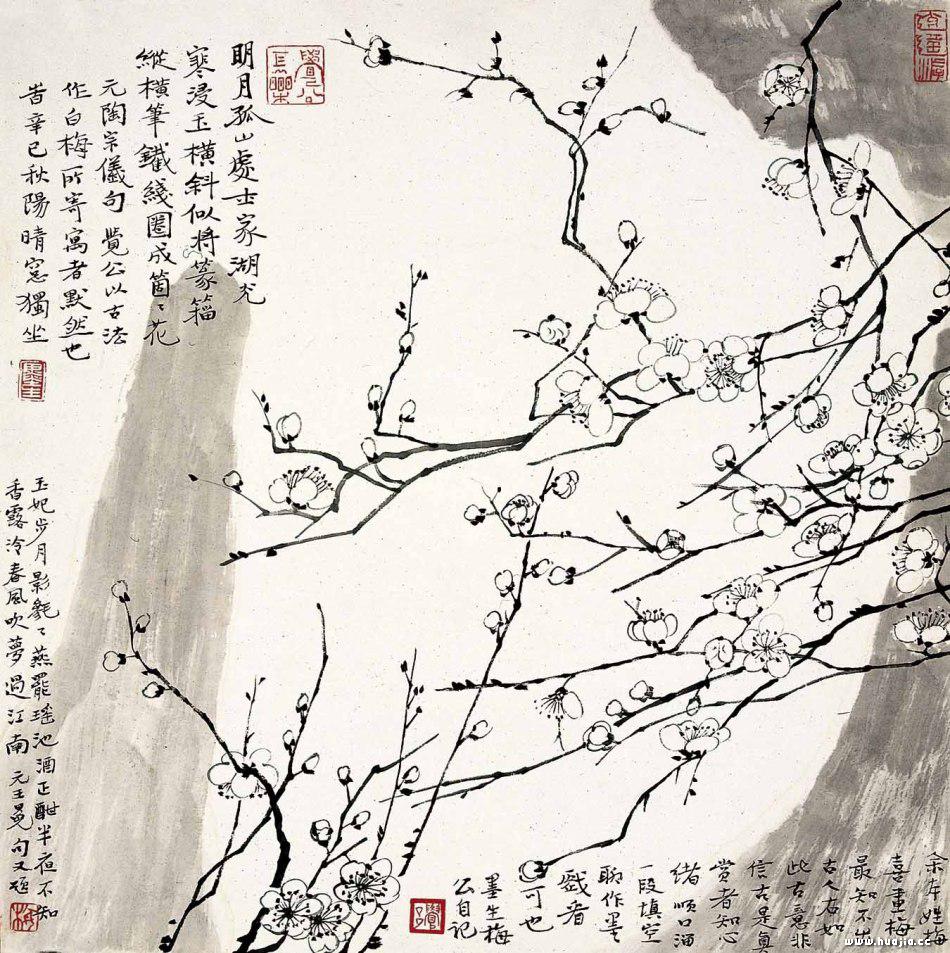 明月孤山處士家湖光
寒浸玉橫斜似將篆籀
縱橫筆鐵綫圈成箇々花
元陶宗儀句覺公以古法
作白梅所寄寓者默然也
昔辛巳秋陽晴窓獨坐
玉妃步月影毿々燕罷瑤池酒正酣半夜不知
香露冷春風吹夢過江南 元王冕句又題
余本姓梅
喜畫梅
最知不出
古人右如
此古意非
信古是真
賞者知心
緒順口油
一段填空
聊作墨
戲看
可也
墨生梅
公自記
www.huajia.cc